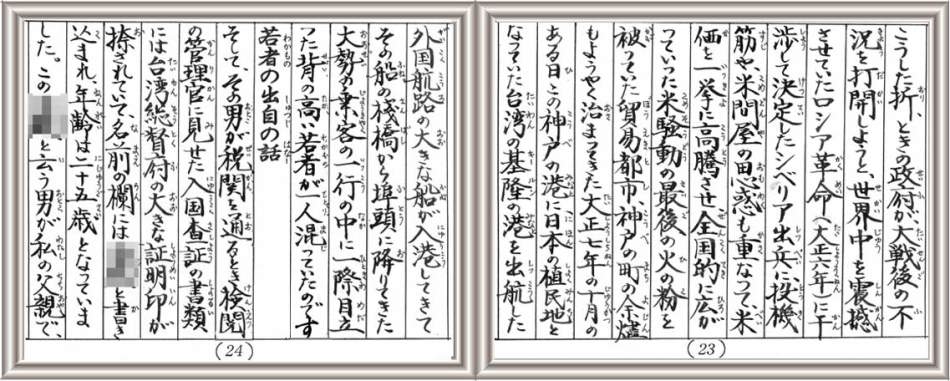 こうした折、ときの政府が大戦後の不
況を打開しようと、世界中を震撼
させていたロシア革命(大正六年)に干
渉して決定したシベリア出兵に投機
筋や、米問屋の思惑も重なって、米
価を一挙に高騰させ全国的に広が
っていった米騒動の最後の火の粉を
被っていた貿易都市、神戸の町の余燼
もようやく治まってきた大正七年の十月の
ある日この神戸の港に日本の植民地と
なっていた台湾の基隆の港を出航した
(23)
外国航路の大きな船が入港してきて
その船の桟橋から埠頭に降りてきた
大勢の乗客の一行の中に一際目立
った背の高い若者が一人混っていたのです
若者の出自の話
そして、その男が税関を通るとき検閲
の管理官に見せた入国査証の書類
には台湾総督府の大きな証明印が
捺されていて、名前の欄には と書き
込まれ、年齢は二十五歳となっていま
した。この と云う男が私の父親で、
(24)